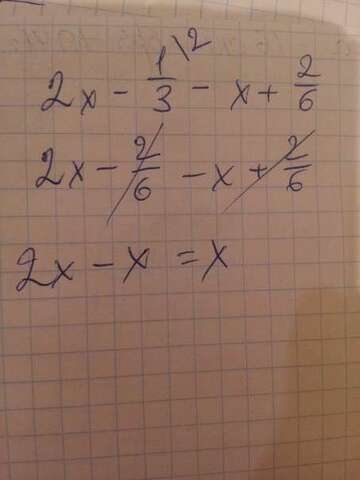 2x - 1/3 \2 - x + 2/6
2x - 2/6 - x + 2/6
2x - x = x